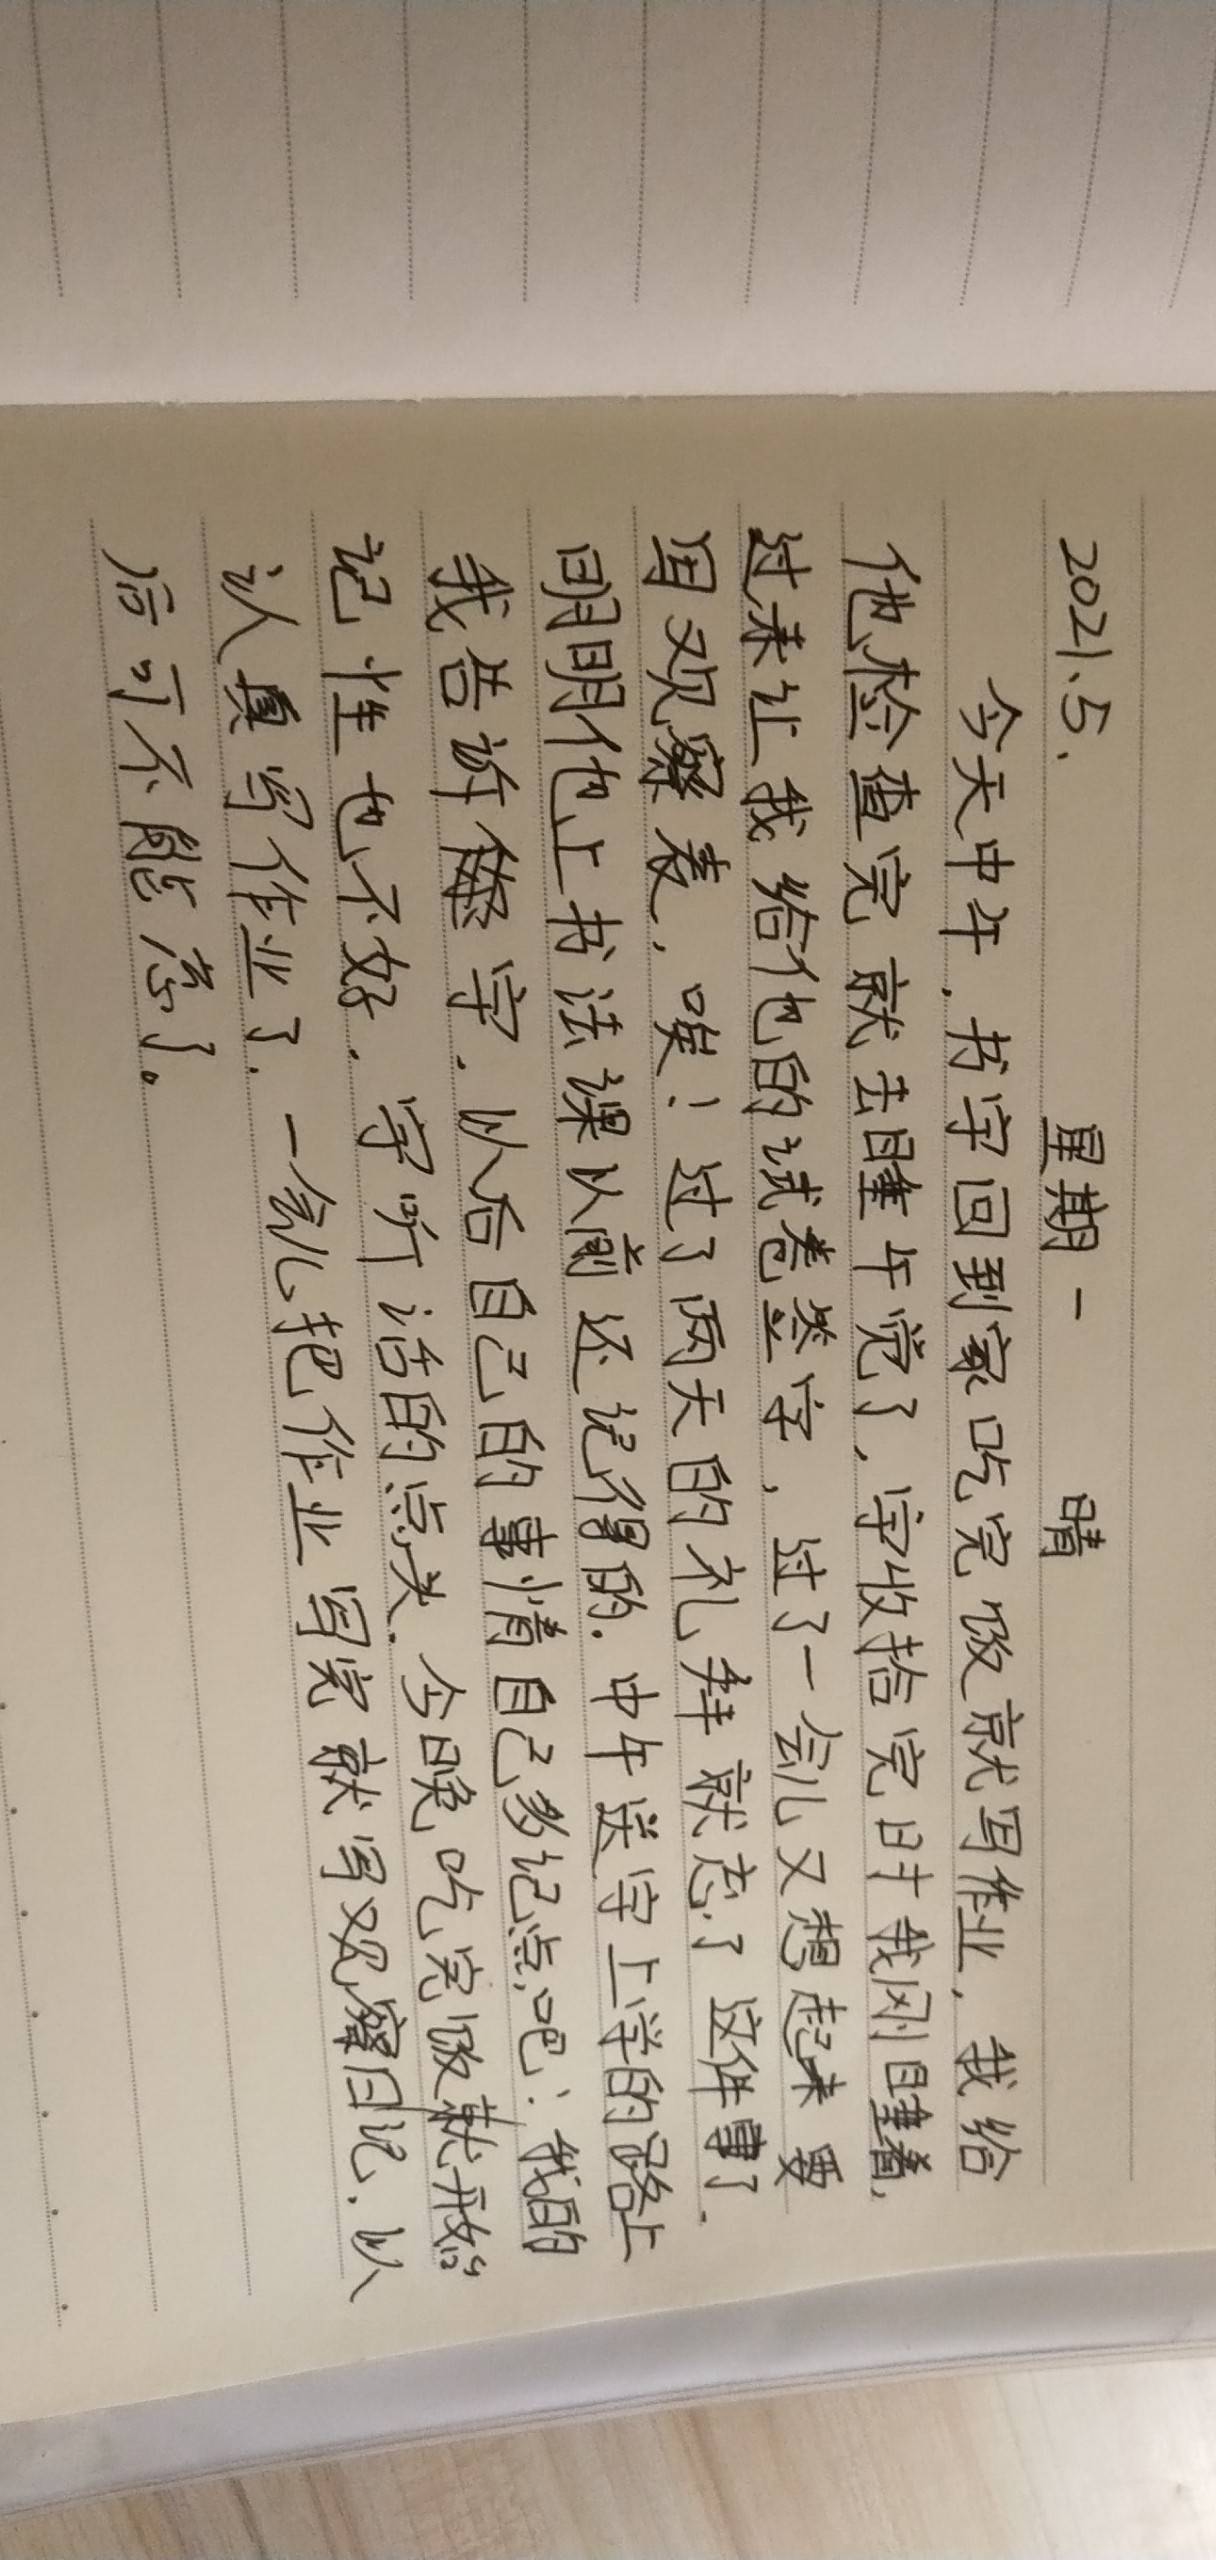 2021、5. 星期一 晴
今天中午，书宇回到家吃完饭就写作业，我给
他检查完就去睡午觉了，宇收拾完时我刚睡着，
过来让我给他的试卷签字，过了一会儿又想起来要
画观察表，唉！过了两天的礼拜就忘了这件事了.
明明他上书法课以前还记得的.中午送宇上学的路上
我告诉宇，以后自己的事情自己多记点吧！我的
记性也不好.宇听话的点头.今晚吃完饭就开始
认真写作业了.一会儿把作业写完就写观察日记.以
后可不能忘了。